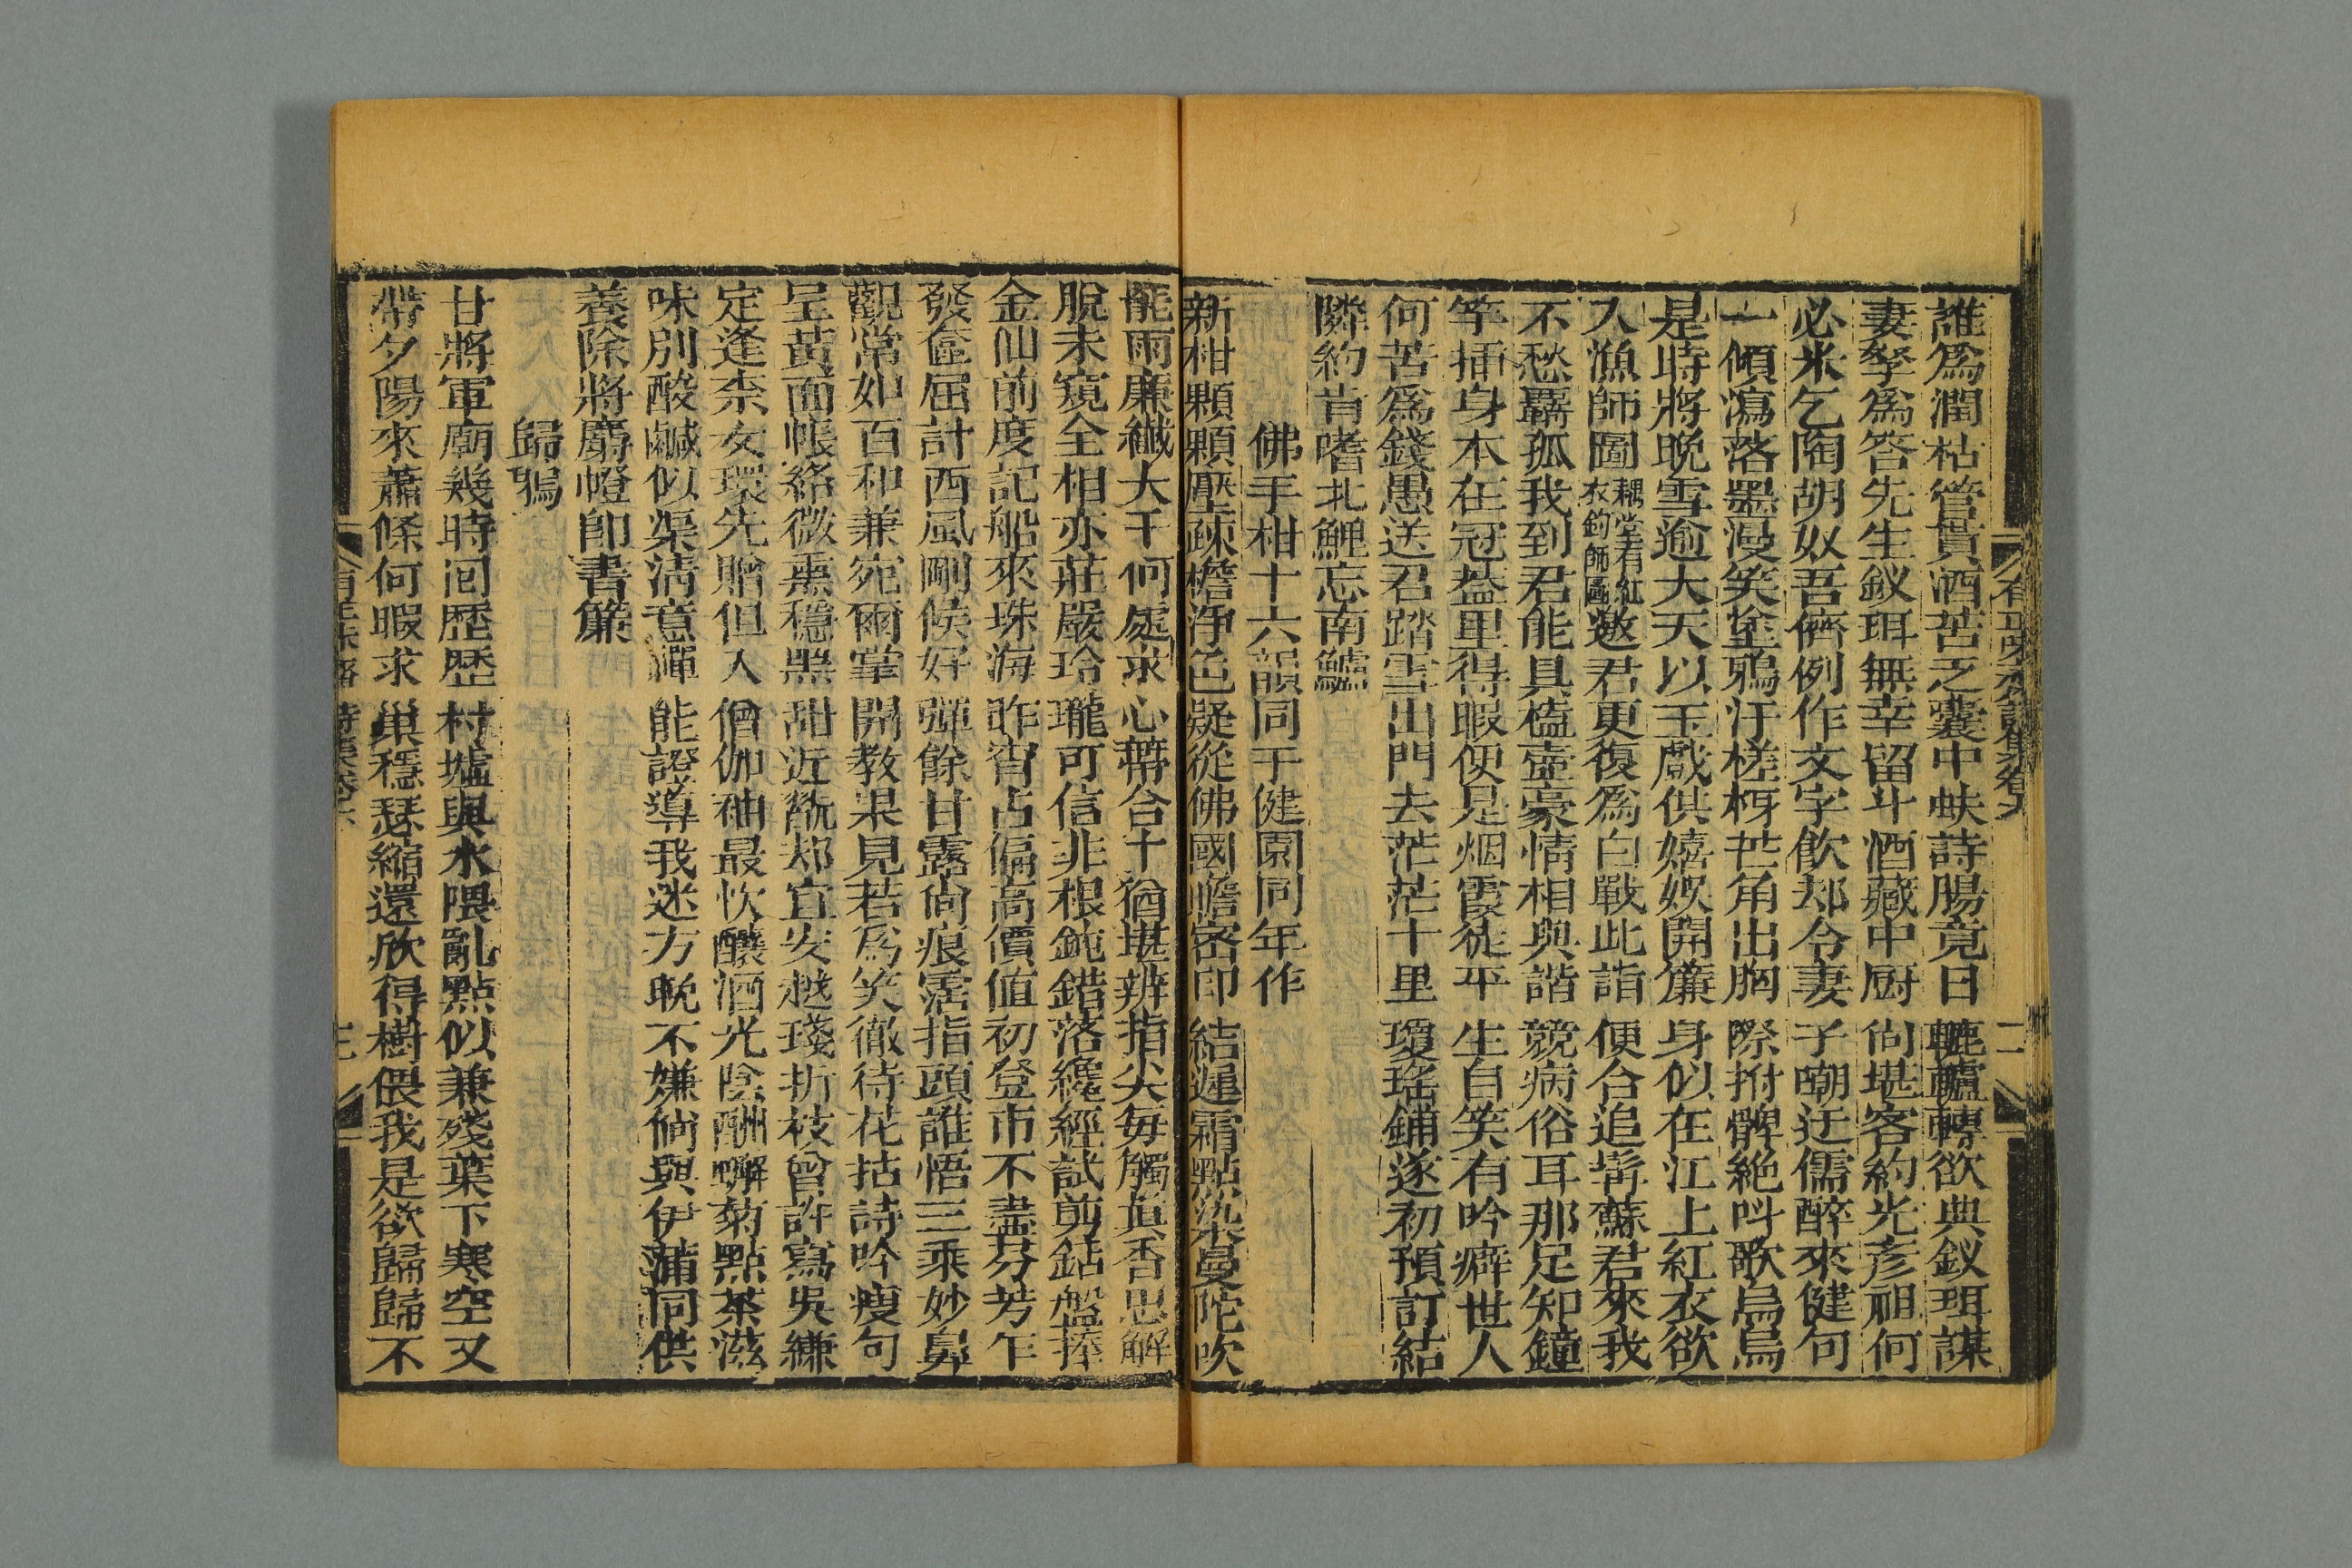 有正味齋詩集卷六
二
誰爲潤枯管貰酒苦乏囊中蚨詩腸竟日轆轤轉欲典釵珥謀
妻孥爲答先生釵珥無幸留斗酒藏中厨尙堪客約光彦祖何
必米乞陶胡奴吾儕例作文字飲却令妻子嘲迂儒醉來健句
一傾瀉落墨漫笑塗鴉汙槎枒芒角出胸際拊髀絶呌歌烏烏
是時將晚雪逾大天以玉戲供嬉娱開簾身似在江上紅衣欲
入漁師圖耦堂有紅衣釣師圖邀君更復爲白戰此詣便合追髯蘇君來我
不愁羈孤我到君能具榼壺豪情相與諧競病俗耳那足知鐘
竽揷身本在冠葢里得暇便是烟霞徒平生自笑有吟癖世人
何苦爲錢愚送君踏雪出門去茫茫十里瓊瑤鋪遂初預訂結
隣約肯嗜北鯉忘南鱸
佛手柑十六韻同于健園同年作
新柑顆顆壓疎檐淨色疑從佛國瞻密印結遲霜點染曼陀吹
罷雨廉纖大千何處求心藕合十猶堪辨指尖每觸眞香思解
脫未窺全相亦莊嚴玲瓏可信非根鈍錯落纔經試剪銛盤捧
金仙前度記船來珠海昨宵占偏高價值初登市不盡芬芳乍
發奩屈計西風剛候好彈餘甘露尙痕霑指頭誰悟三乘妙鼻
觀常如百和兼宛爾掌開教果見若爲笑徹待花拈詩吟瘦句
呈黄面帳絡微熏穩黑甜近翫却宜安越琖折枝曾許寫吳縑
定逢柰女環先贈但入僧伽袖最忺釀酒光陰酬蠏菊點茶滋
味別酸鹹似渠淸意渾能證導我迷方晚不嫌倘與伊蒲同供
養除將麝燈卽書簾
歸鴉
甘將軍廟幾時囘歷歷村墟與水隈亂點似兼殘葉下寒空又
帶夕陽來蕭條何暇求巢穩瑟縮還欣得樹偎我是欲歸歸不